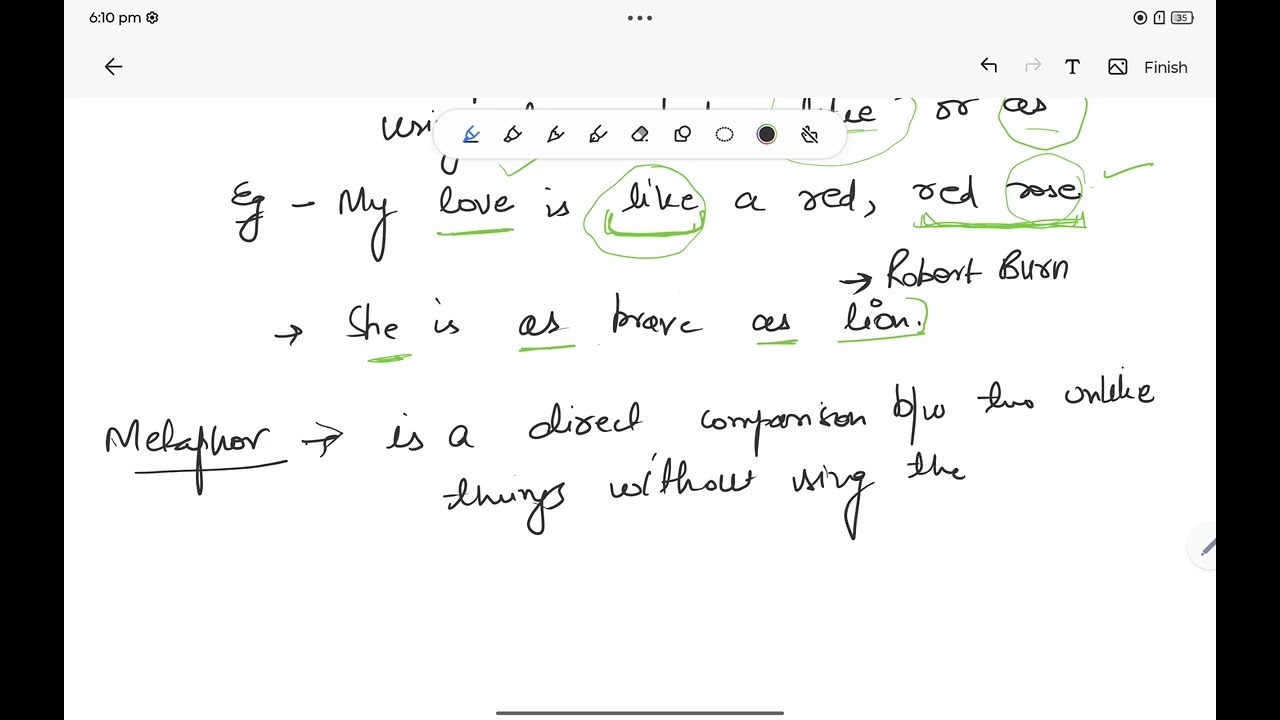 6:10 pm
35
T
Finish
or as
Eg - My love is like a red, red rose.
→ Robert Burn
→ She is as brave as lion.
Metaphor → is a direct comparison b/w two unlike
things without using the